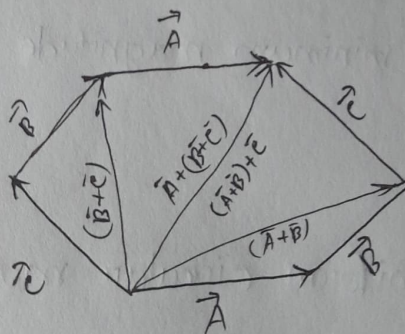 A⃗
B⃗
C⃗
(B̄+C̄)
Ā+(B̄+C̄)
(Ā+B̄)+C̄
(Ā+B̄)
C⃗
B⃗
A⃗